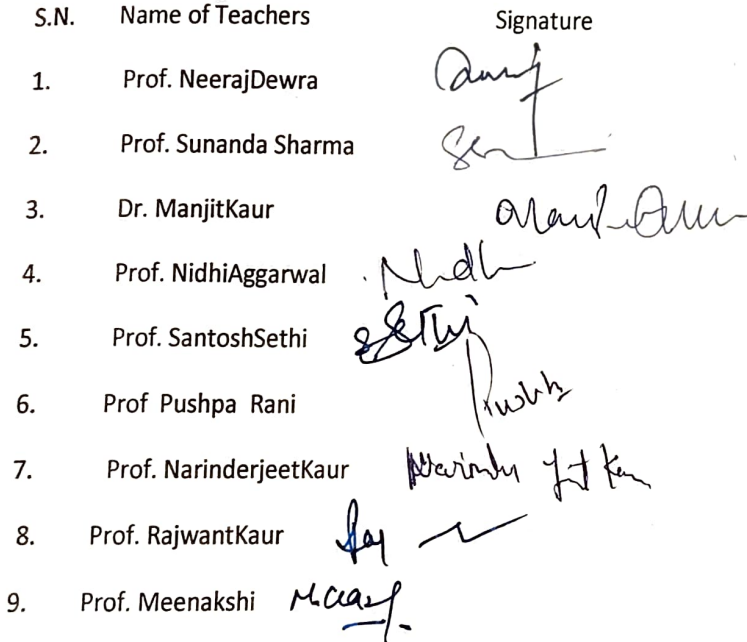 S.N. Name of Teachers Signature
1. Prof. NeerajDewra
2. Prof. Sunanda Sharma
3. Dr. ManjitKaur
4. Prof. NidhiAggarwal Nidhi
5. Prof. SantoshSethi SSethi
6. Prof Pushpa Rani
7. Prof. NarinderjeetKaur Narinder jeet Kaur
8. Prof. RajwantKaur Raj
9. Prof. Meenakshi